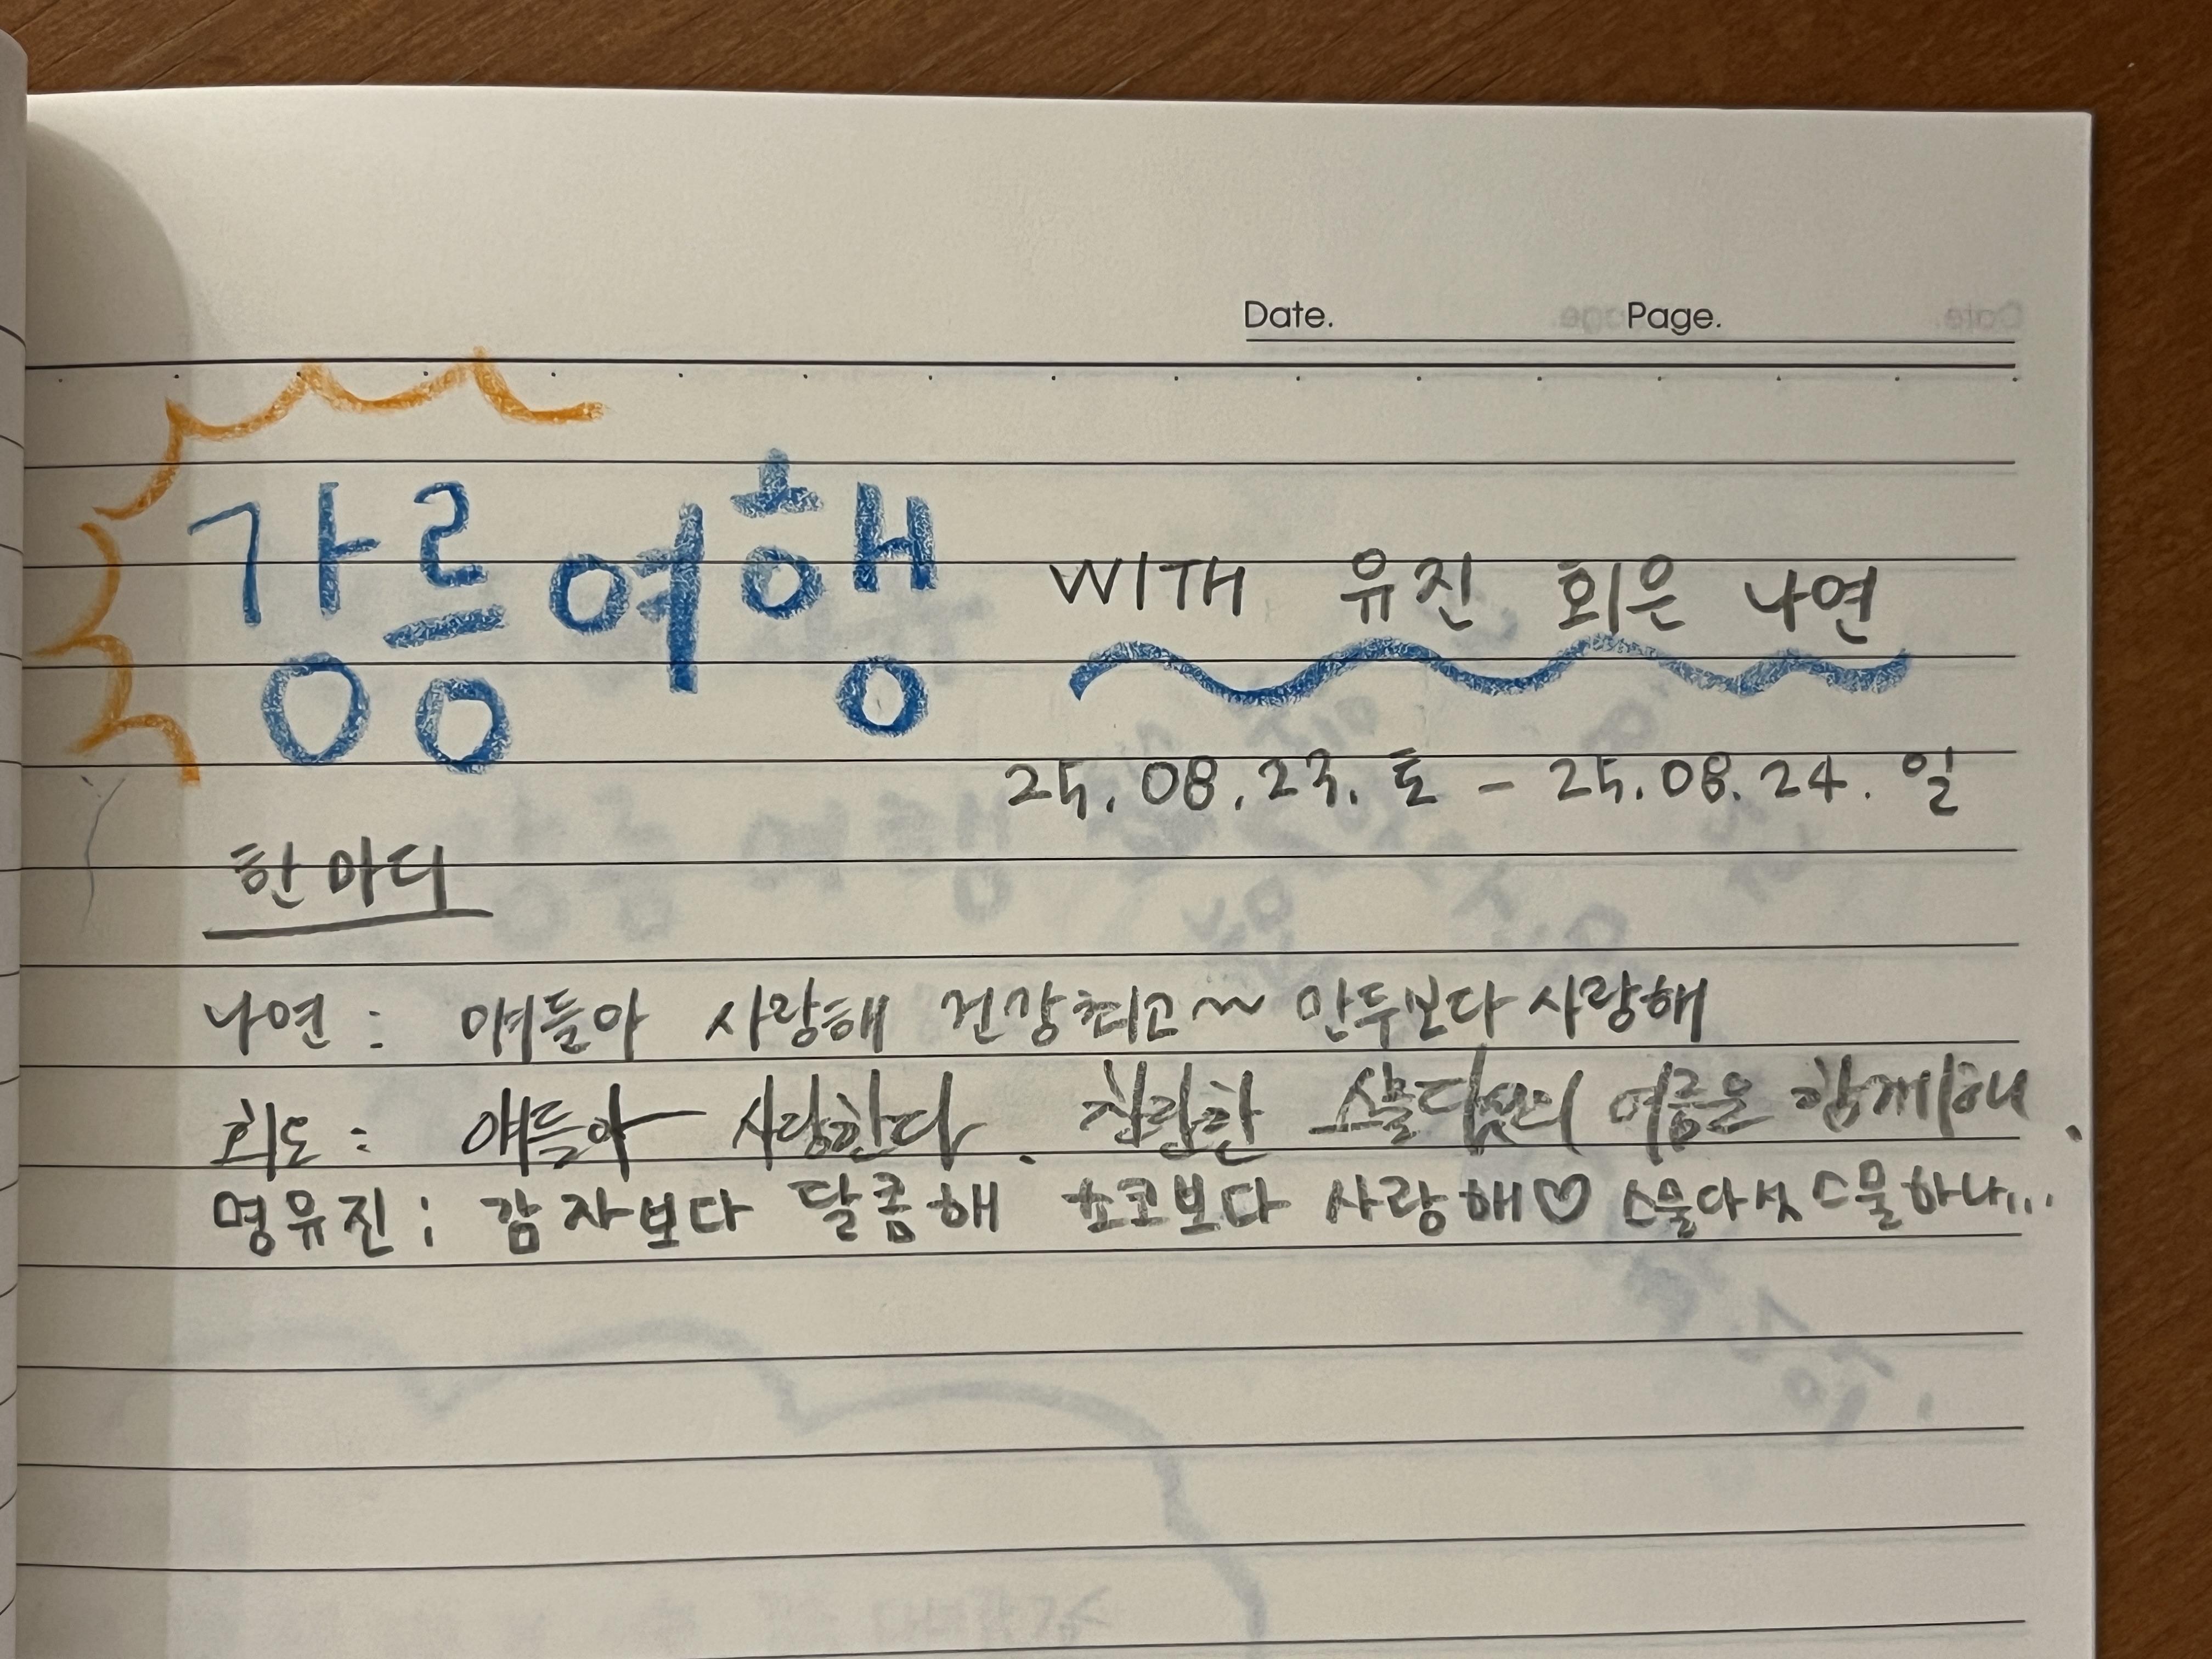 Date. Page.
강릉여행 WITH 유진 희은 나연
25.08.23. 토 - 25.08.24. 일
한마디
나연 : 얘들아 사랑해 건강최고~ 만두보다 사랑해
희도 : 얘들아 사랑한다. 찬란한 스물다섯의 여름을 함께해.
명유진 : 감자보다 달콤해 쵸코보다 사랑해♡ 스물다섯 스물하나...